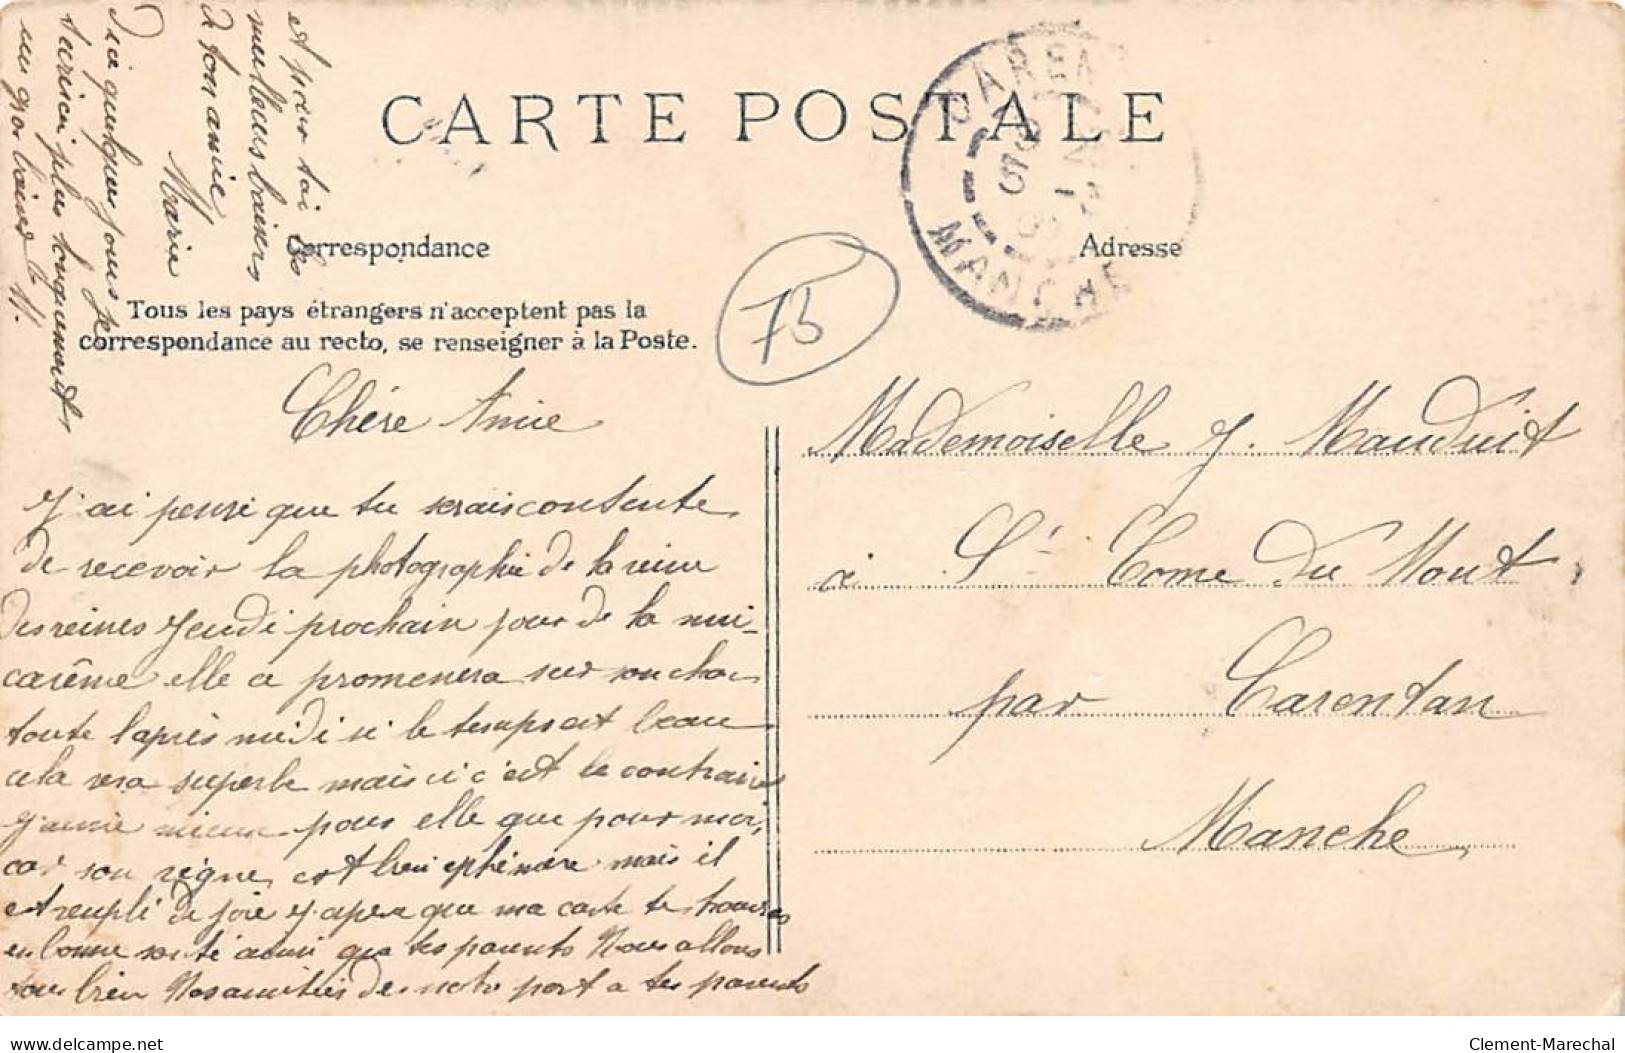 CARTE POSTALE
Correspondance
Adresse
Tous les pays étrangers n'acceptent pas la
correspondance au recto, se renseigner à la Poste.
75
CARENTAN
MANCHE
Chére Amie
J'ai pensé que tu serais contente
de recevoir la photographie de la reine
des reines Jeudi prochain jour de la mi-
carême elle ce promenera sur son char
toute l'après midi si le temps est beau
cela sera superbe mais si c'est le contraire
j'aime mieux pour elle que pour moi,
car son règne est bien ephémère mais il
est rempli de joie J'espere que ma carte te trouvera
en bonne santé ainsi que tes parents Nous allons
tous bien Nos amitiés de notre part a tes parents
et pour toi les
meilleurs baisers
de ton amie
Marie
D'ici quelques jours je
t'ecrirai plus longuement
un gros baiser
Mademoiselle J. Mauduit
à St Come du Mont
par Carentan
Manche
delcampe.net
Clement-Marechal